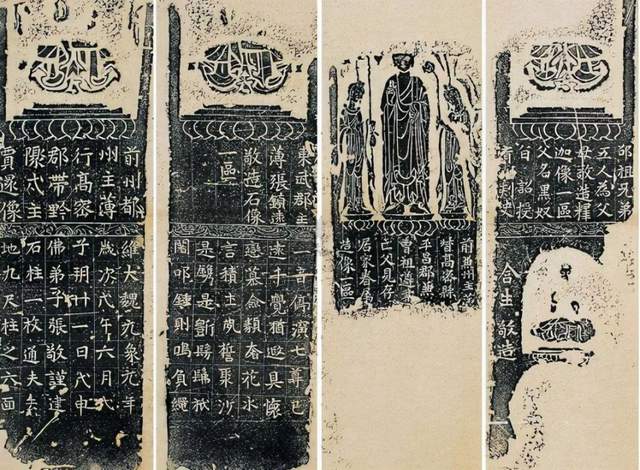 前州都
州主薄
行高密
郡帶黔
陬戍主
賈邃像
維大魏元象元年
歲次戊午六月戊
子玥廿一日戊申
佛弟子張敬謹造
石柱一枚通夫
地九尺柱之六面
東武郡主
薄張鎮遠
敬造石像
一區
一音傳演七尊已
遠千覺猶遐具懷
戀慕命類春花水
言積土誓聚沙
是是
叩鍾則鳴負繩
前兼州主薄
高密縣
平昌郡兼
曹祖道為
亡父見存
居家眷屬
造像一區
邵祖兄弟
五人為父
母敬造釋
迦像一區
父名黑奴
旨詔授
青州刺史
合生敬造